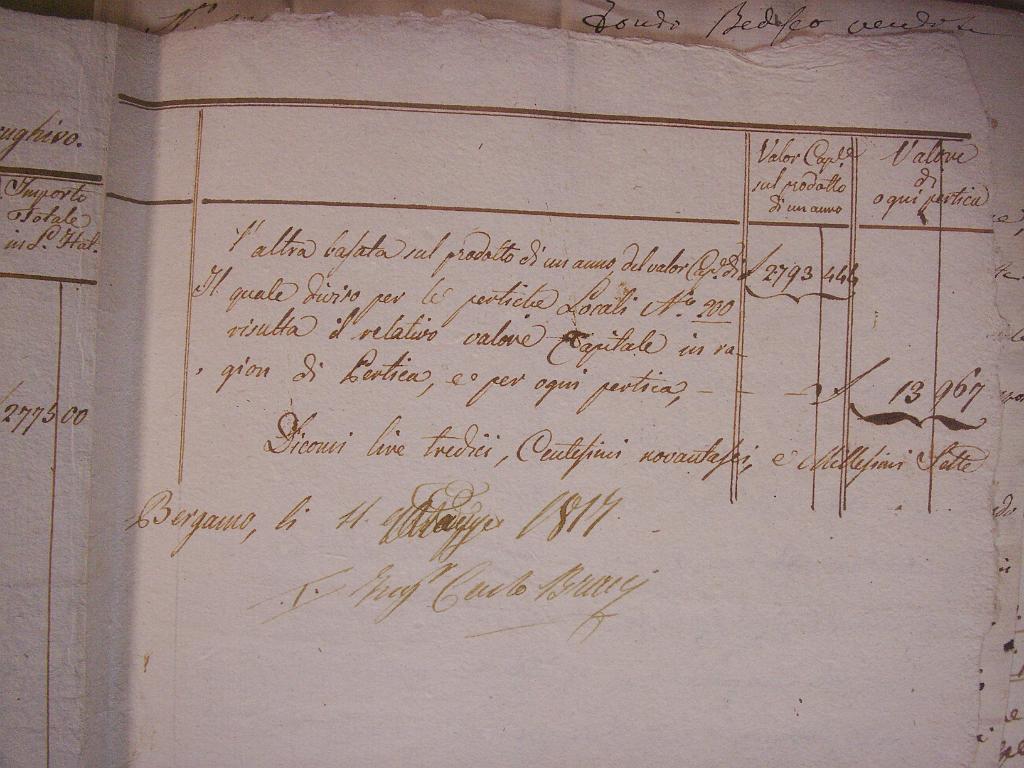 Fondo Bedesco vendo
ughivo.
Importo
Totale
in L.e Ital.
2775 00
Valor Cap.le
sul prodotto
di un anno
Valore
di
ogni pertica
l'altra basata sul prodotto di un anno del valor Cap.e di £ 2793 464
Il quale diviso per le pertiche Locali N.o 200
risulta il relativo valore Capitale in ra-
gion di Pertica, e per ogni pertica, - - - £ 13 967
Diconsi lire tredici, Centesimi novantasei, e Millesimi Sette
Bergamo, li 11. Maggo 1817
F. Ing.r Carlo